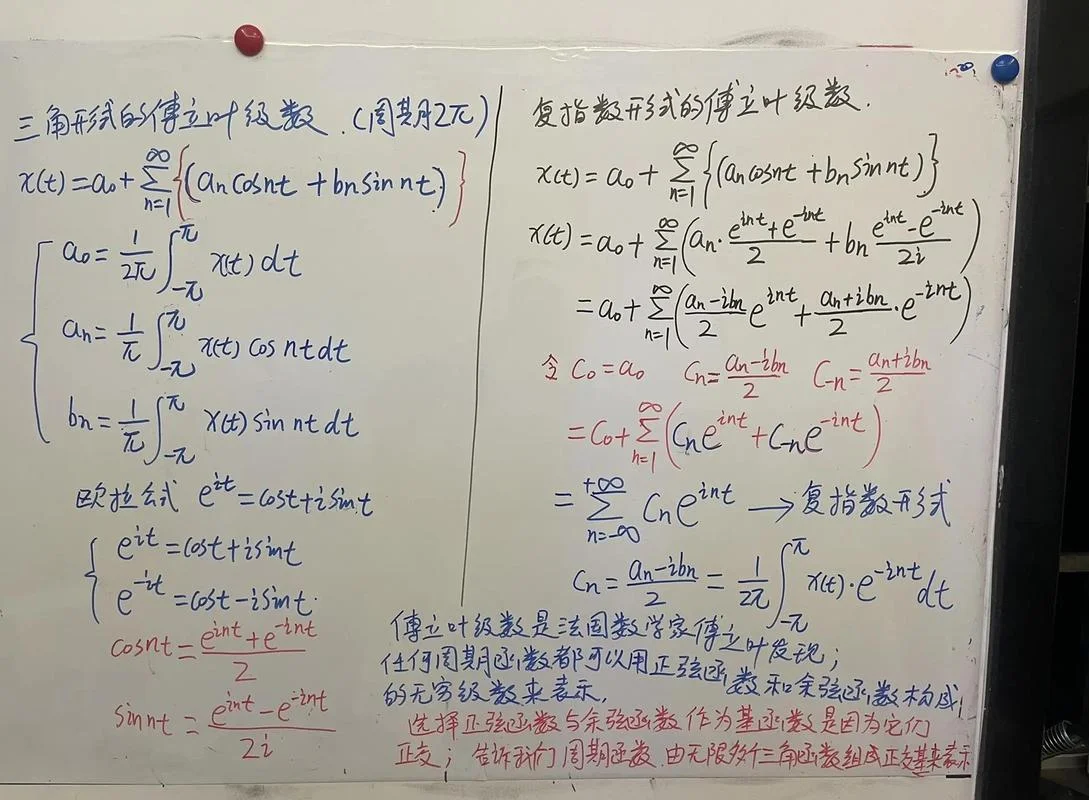 三角形式的傅立叶级数.(周期2π)
x(t)=a₀+∑_{n=1}^{∞}{(aₙcosnt+bₙsin nt)}
a₀=\frac{1}{2π}∫_{-π}^{π}x(t)dt
aₙ=\frac{1}{π}∫_{-π}^{π}x(t)cos nt dt
bₙ=\frac{1}{π}∫_{-π}^{π}x(t)sin nt dt
欧拉公式 e^{it}=cost+isint
e^{it}=cost+isint
e^{-it}=cost-isint.
cosnt=\frac{e^{int}+e^{-int}}{2}
sinnt=\frac{e^{int}-e^{-int}}{2i}
复指数形式的傅立叶级数.
x(t)=a₀+∑_{n=1}^{∞}{(aₙcosnt+bₙsinnt)}
x(t)=a₀+∑_{n=1}^{∞}(aₙ·\frac{e^{int}+e^{-int}}{2}+bₙ\frac{e^{int}-e^{-int}}{2i})
=a₀+∑_{n=1}^{∞}(\frac{aₙ-ibₙ}{2}e^{int}+\frac{aₙ+ibₙ}{2}·e^{-int})
令 C₀=a₀ Cₙ=\frac{aₙ-ibₙ}{2} C₋ₙ=\frac{aₙ+ibₙ}{2}
=C₀+∑_{n=1}^{∞}(Cₙe^{int}+C₋ₙe^{-int})
=∑_{n=-∞}^{+∞}Cₙe^{int}→复指数形式
Cₙ=\frac{aₙ-ibₙ}{2}=\frac{1}{2π}∫_{-π}^{π}x(t)·e^{-int}dt
傅立叶级数是法国数学家傅立叶发现;
任何周期函数都可以用正弦函数和余弦函数构成
的无穷级数来表示.
选择正弦函数与余弦函数作为基函数是因为它们
正交;告诉我们周期函数.由无限多个三角函数组成正交基来表示